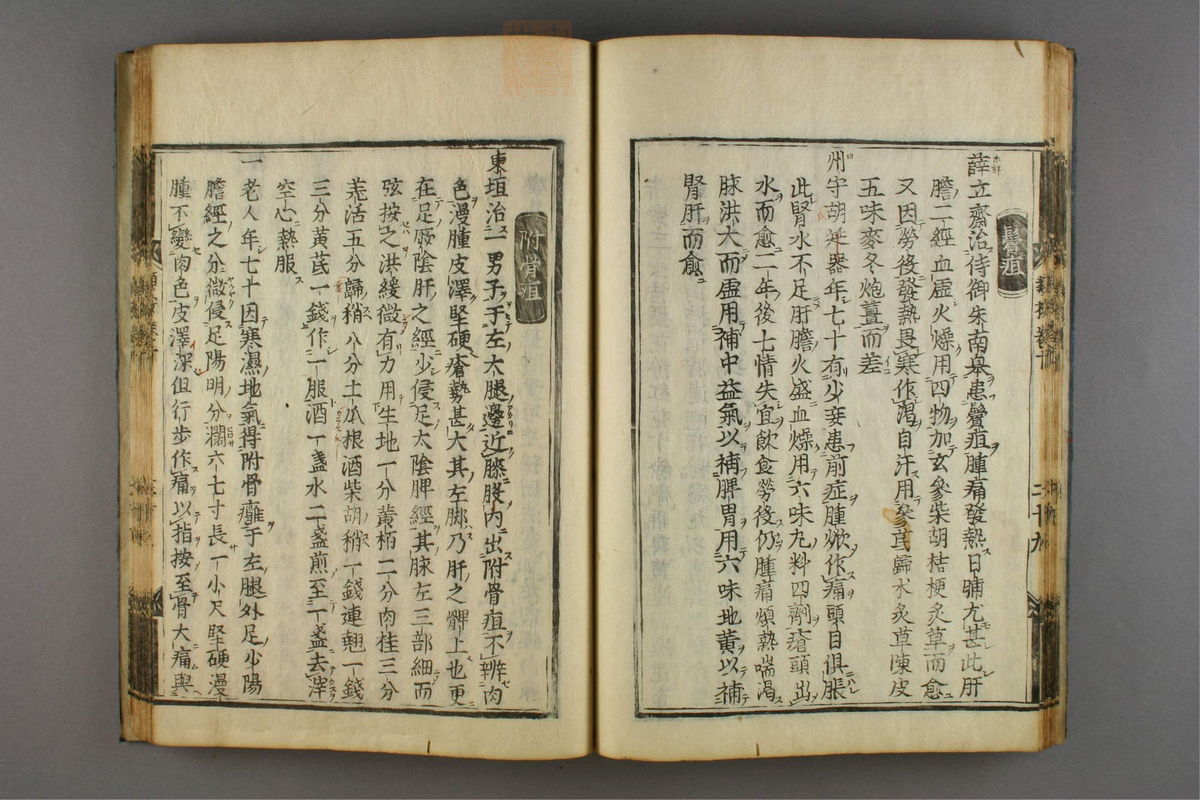 鬢疽
薛立齋治侍御朱南皐患鬢疽腫痛發熱日晡尤甚此肝
膽二經血虛火燥用四物加玄參柴胡桔梗炙草而愈
又因勞後發熱畏寒作渴自汗用參芪歸朮炙草陳皮
五味麥冬炮薑而差
州守胡廷器年七十有少妾患前症腫焮作痛頭目俱脹
此腎水不足肝膽火盛血燥用六味丸料四劑瘡頭出
水而愈二年後七情失宜飲食勞後仍腫痛煩熱喘渴
脉洪大而虛用補中益氣以補脾胃用六味地黃以補
腎肝而愈
附骨疽
東垣治一男子于左大腿邊近膝股內出附骨疽不辨肉
色漫腫皮澤堅硬瘡勢甚大其左脚乃肝之髀上也更
在足厥陰肝之經少侵足太陰脾經其脉左三部細而
弦按之洪緩微有力用生地一分黃栢二分肉桂三分
羌活五分歸稍八分土瓜根酒柴胡稍一錢連翹一錢
三分黃芪一錢作一服酒一盞水二盞煎至一盞去滓
空心熱服
一老人年七十因寒濕地氣得附骨癰于左腿外足少陽
膽經之分微侵足陽明分濶六七寸長一小尺堅硬漫
腫不變肉色皮澤深但行步作痛以指按至骨大痛與